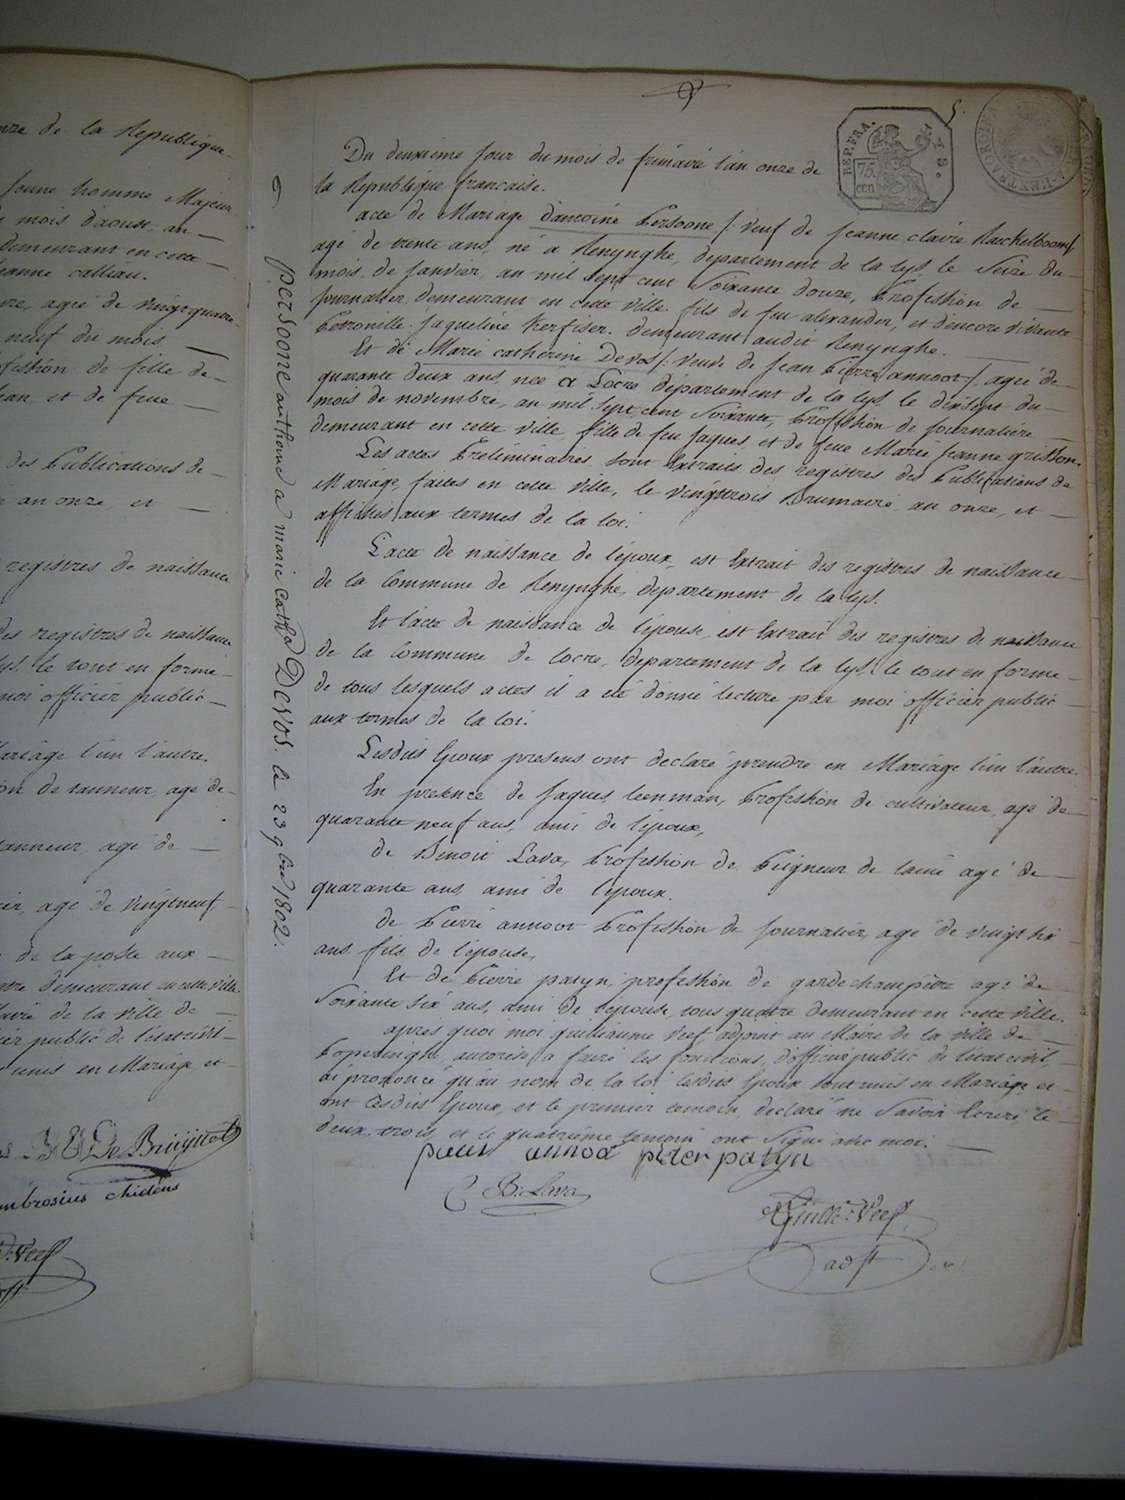 onze de la Republique
Jeune homme Majeur
mois d'aoust an
demeurant en cette
jeanne calleau.
agée de vingtquatre
neuf du mois
profession de fille de
jean et de feue
des Publications de
an onze, et
registres de naissance
des registres de naissance
lys, le tout en forme
moi officier public
Mariage l'un l'autre.
profession de tanneur, agé de
tanneur, agé de
agé de vingtneuf
de la poste aux
quatre demeurant en cette ville
Maire de la ville de
officier public de l'etat civil
unis en Mariage et
B E De Bruÿne
ambrosius
Veef
adjt
5.
REP. FRA.
75.
cen
persoone anthone a marie catha DeVos. le 23 9bre 1802.
Du deuxieme Jour du mois de frimaire l'an onze de
la Republique française.
acte de Mariage d'antoine Persoone /: veuf de Jeanne claire Raeckelboom /
agé de trente ans, né a Renynghe, departement de la Lys, le Seize du
mois de Janvier, an mil Sept cent Soixante douze, Profession de
Journalier, demeurant en cette ville, fils de feu alexander, et d'encore vivante
Petronille Jaqueline Verfiser. demeurant audit Renynghe.
Et de Marie catherine Devos /: veuve de Jean Pierre annoot /. agée de
quarante deux ans, née a Locre departement de la Lys, le dixsept du
mois de novembre, an mil Sept cent Soixante, Profession de Journalière
demeurant en cette ville, fille de feu Jaques, et de feue Marie Jeanne grisson.
Les actes Preliminaires Sont Extraits des registres des Publications de
Mariage faites en cette ville, le vingttrois Brumaire, an onze, et
affichés aux termes de la loi.
L'acte de naissance de l'epoux, est Extrait des registres de naissance
de la Commune de Renynghe, departement de la Lys.
Et l'acte de naissance de l'epouse, est Extrait des registres de naissance
de la Commune de Locre, departement de la Lys, le tout en forme
de tous lesquels actes il a eté donné lecture par moi officier public
aux termes de la loi.
Lesdits Epoux presens ont declaré prendre en Mariage l'un l'autre.
En presence de Jaques Leenman, Profession de cultivateur, agé de
quarante neuf ans, ami de l'epoux,
de Benoit Lava, Profession de Peigneur de laine agé de
quarante ans, ami de l'epoux.
de Pierre annoot Profession de Journalier, agé de vingt six
ans, fils de l'epouse,
Et de Pierre patyn, profession de gardechampêtre agé de
Soixante Six ans, ami de l'epouse, tous quatre demeurant en cette ville.
après quoi moi guillaume Veef, adjoint au Maire de la ville de
Poperinghe, autorisé a faire les fonctions, d'officier public de l'etat civil,
ai prononcé qu'au nom de la loi lesdits Epoux Sont unis en Mariage, et
ont lesdits Epoux, et le premier temoin, declaré ne Savoir Ecrire, le
deux, trois, et le quatrième temoin ont Signé avec moi.
annoot pieter patyn
B. Lava
Guille. Veef
adjt